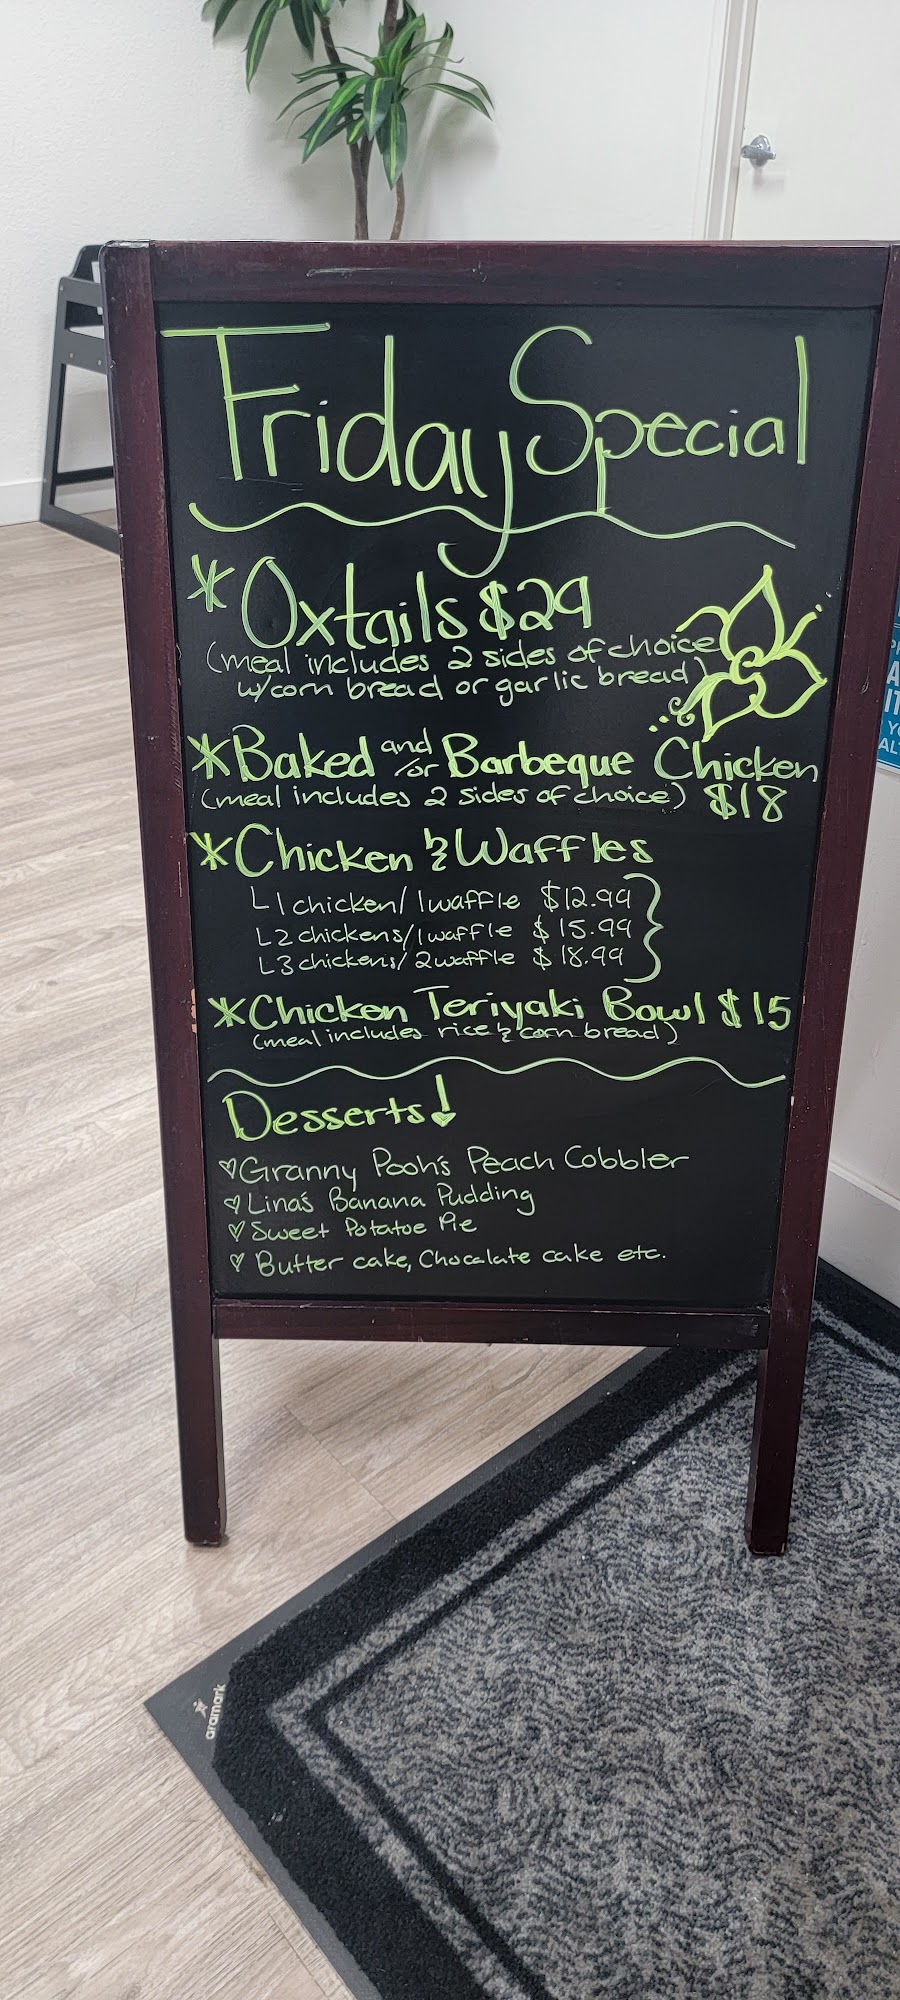 Friday Special
*Oxtails $29
(meal includes 2 sides of choice
w/corn bread or garlic bread)
*Baked and/or Barbeque Chicken
(meal includes 2 sides of choice) $18
*Chicken & Waffles
L1 chicken/1waffle $12.99
L2 chickens/1waffle $15.99
L3 chickens/2waffle $18.99
*Chicken Teriyaki Bowl $15
(meal includes rice & corn bread)
Desserts!
♡Granny Pooh's Peach Cobbler
♡Lina's Banana Pudding
♡Sweet Potatoe Pie
♡Butter cake, Chocalate cake etc.
aramark